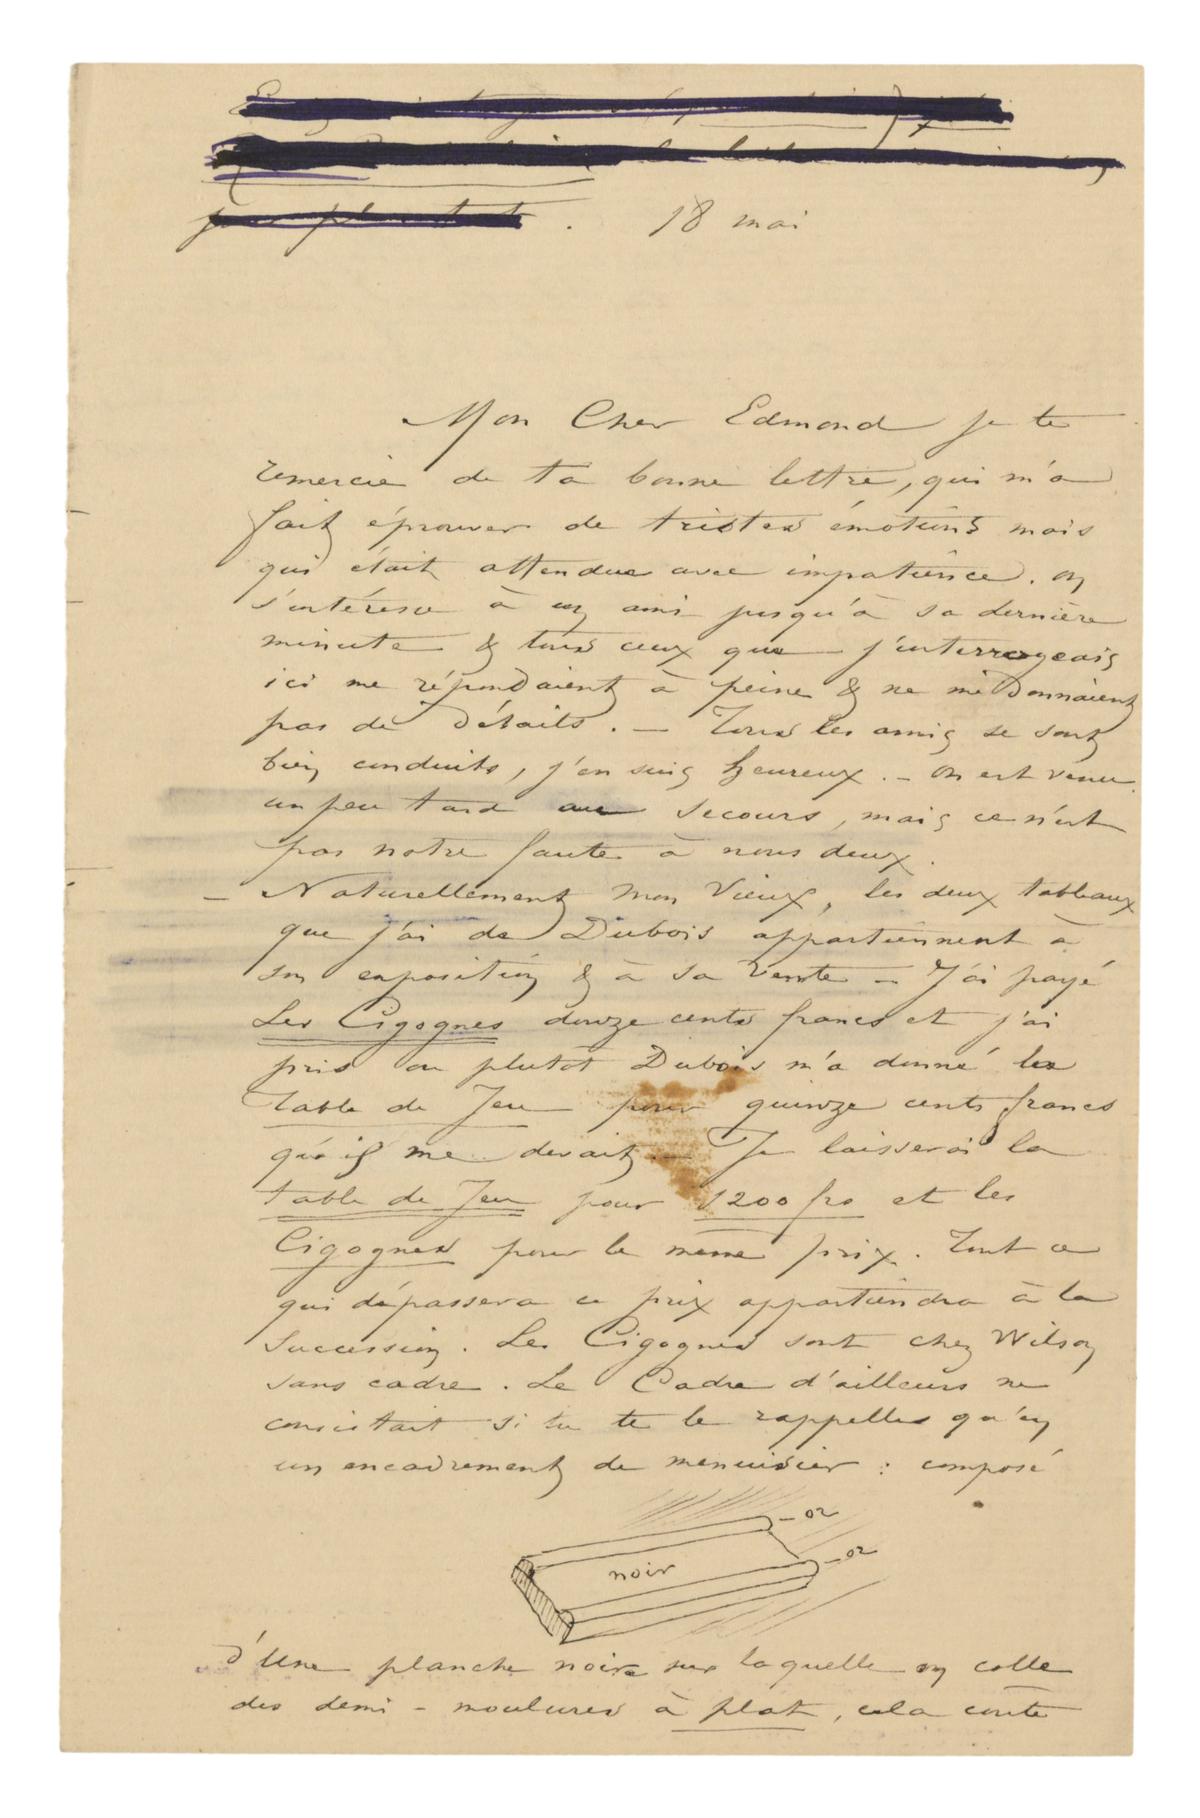 pas plus tard. 18 mai
Mon Cher Edmond je te
remercie de ta bonne lettre, qui m'a
fait éprouver de tristes émotions mais
qui était attendue avec impatience. on
s'intéresse à un ami jusqu'à sa dernière
minute & tous ceux que j'interrogeais
ici me répondaient à peine & ne me donnaient
pas de détails. — Tous les amis se sont
bien conduits, j'en suis heureux. — On est venu
un peu tard au secours, mais ce n'est
pas notre faute à nous deux.
— Naturellement mon Vieux, les deux tableaux
que j'ai de Dubois appartiennent à
son exposition & à sa vente — J'ai payé
Les Cigognes douze cents francs et j'ai
pris ou plutôt Dubois m'a donné la
Table de Jeu pour quinze cents francs
qu'il me devait. — Je laisserai la
table de Jeu pour 1200 frs et les
Cigognes pour le même prix. Tout ce
qui dépassera ce prix appartiendra à la
Succession. Les Cigognes sont chez Wilson
sans cadre. Le Cadre d'ailleurs ne
consistait si tu te le rappelles qu'en
un encadrement de menuisier : composé
— or
noir — or
d'une planche noire sur laquelle on colle
des demi - moulures à plat, cela coûte